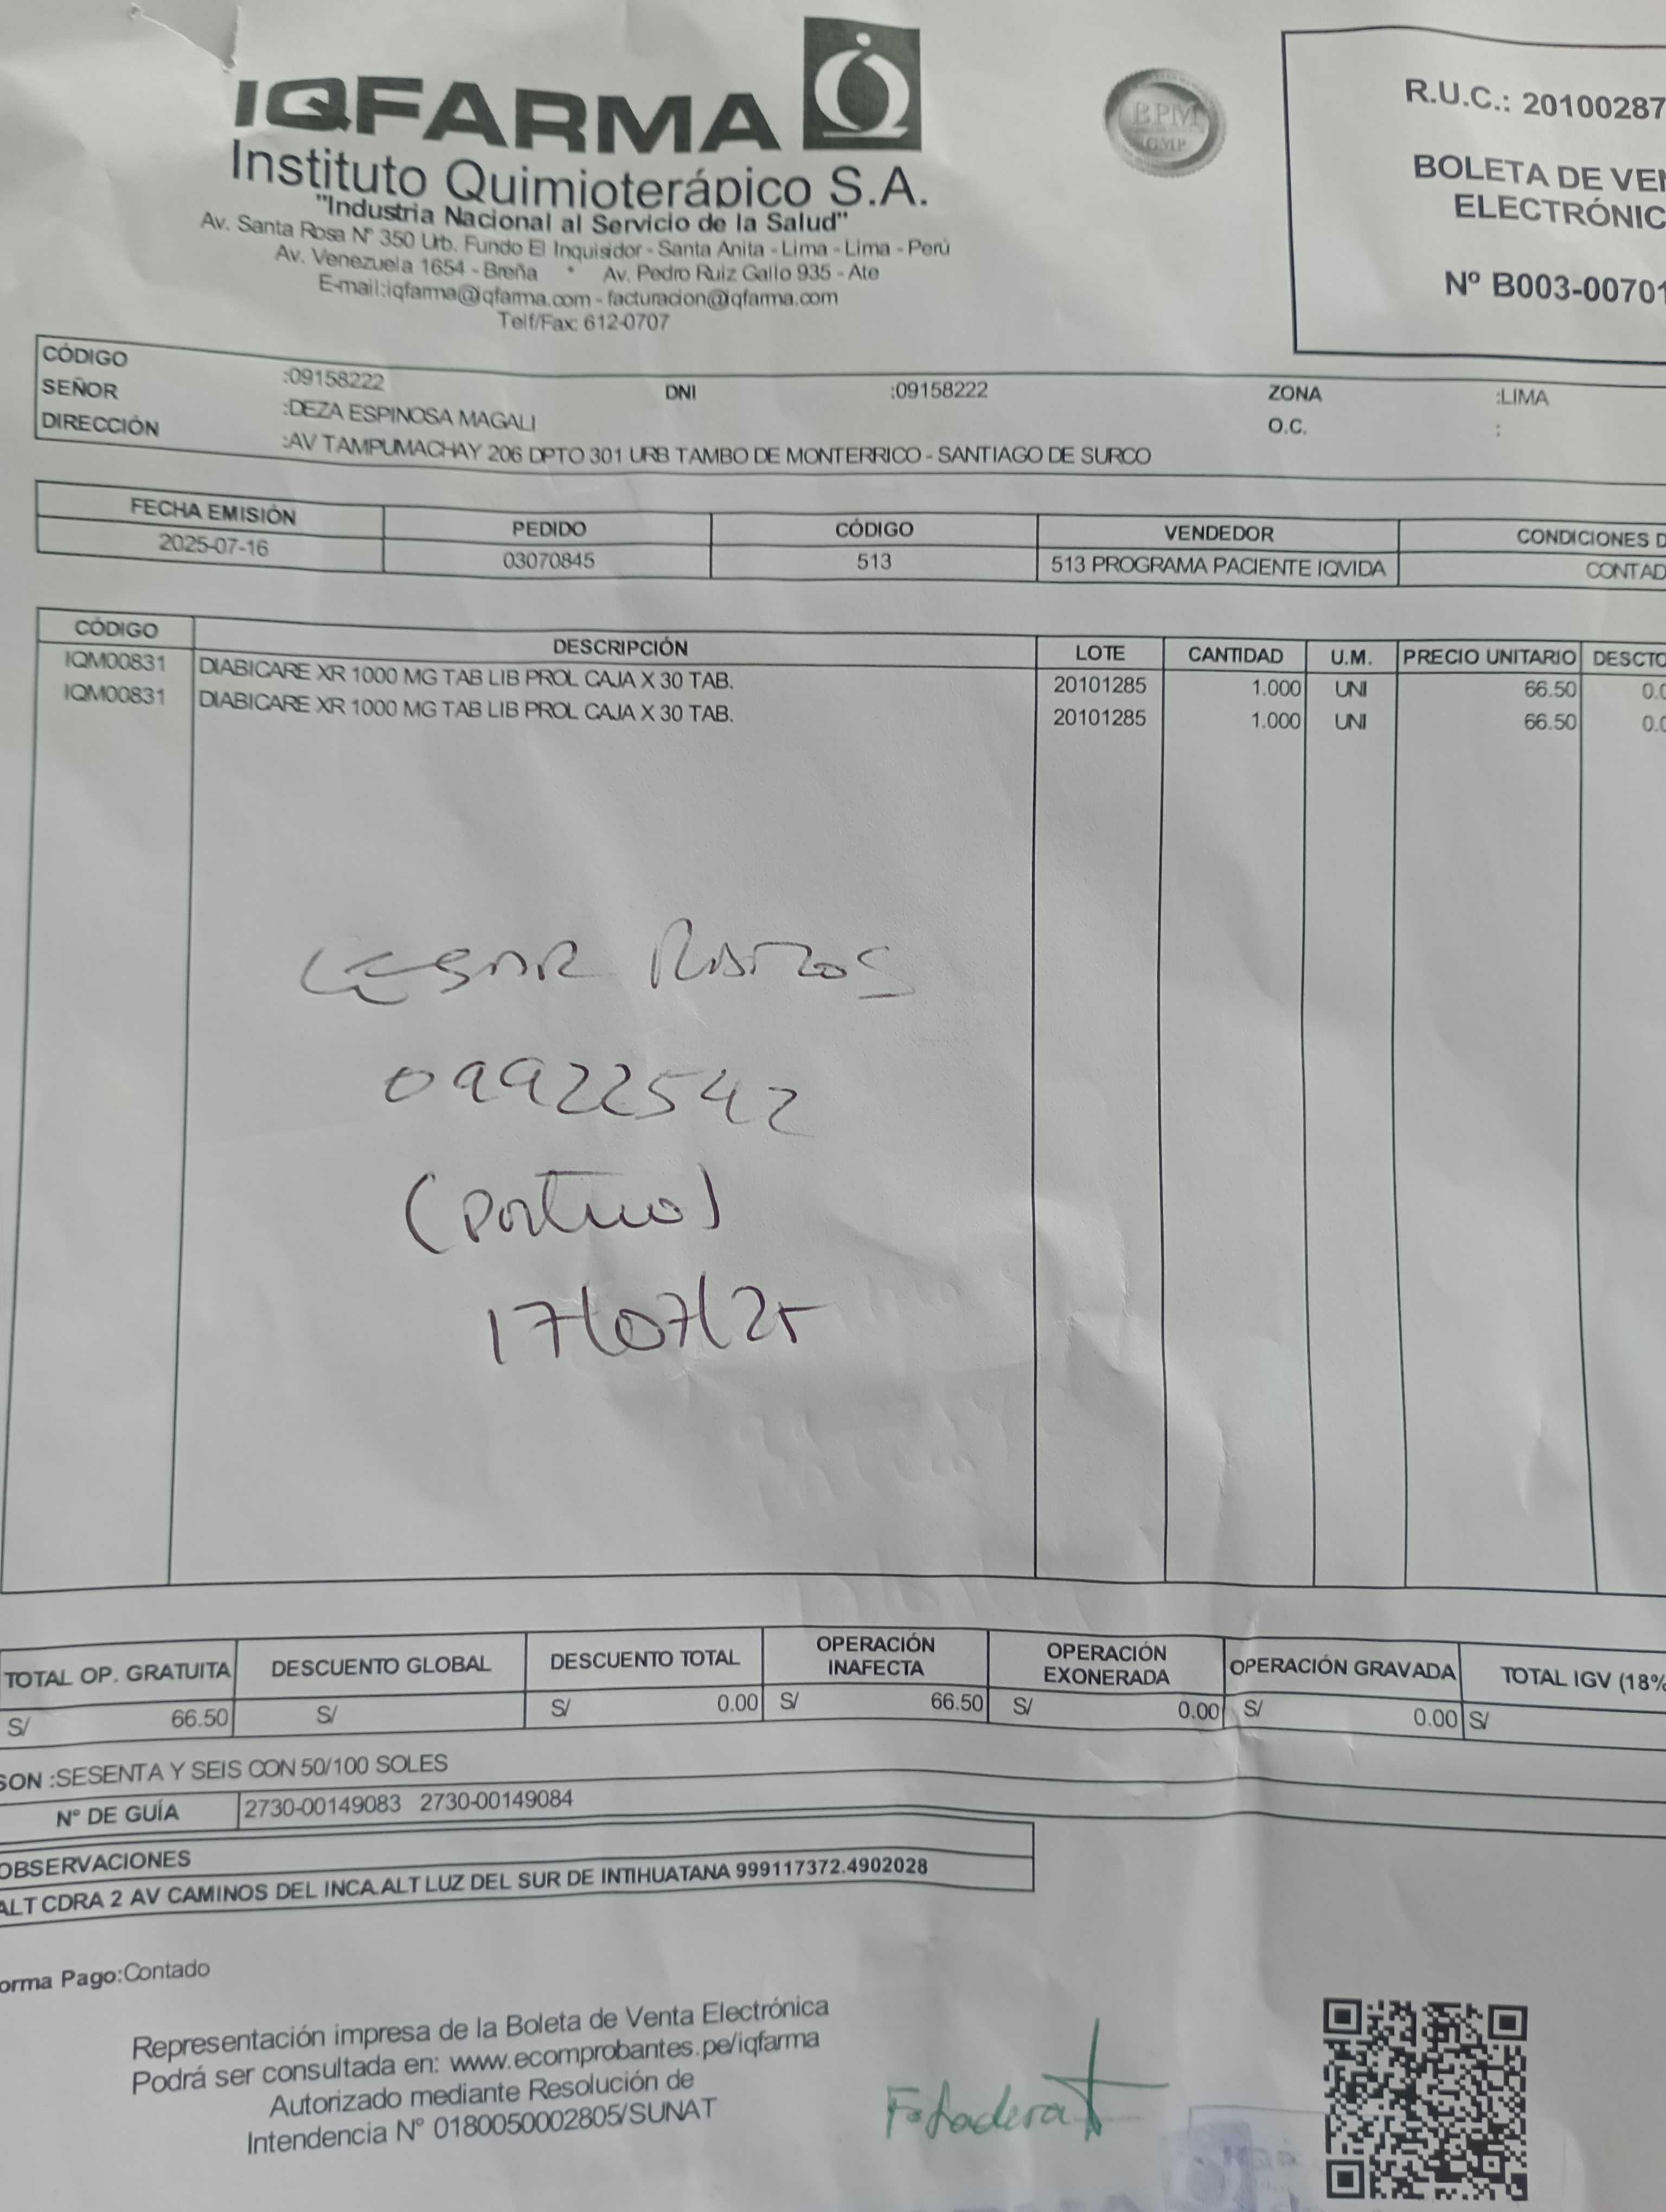 IQFARMA
Instituto Quimioterápico S.A.
"Industria Nacional al Servicio de la Salud"
Av. Santa Rosa N° 350 Urb. Fundo El Inquisidor - Santa Anita - Lima - Lima - Perú
Av. Venezuela 1654 - Breña * Av. Pedro Ruiz Gallo 935 - Ate
E-mail:iqfarma@iqfarma.com - facturacion@iqfarma.com
Telf/Fax: 612-0707
BPM
GMP
R.U.C.: 20100287
BOLETA DE VEN
ELECTRÓNIC
Nº B003-00701
CÓDIGO :09158222 DNI :09158222 ZONA :LIMA
SEÑOR :DEZA ESPINOSA MAGALI O.C. :
DIRECCIÓN :AV TAMPUMACHAY 206 DPTO 301 URB TAMBO DE MONTERRICO - SANTIAGO DE SURCO
FECHA EMISIÓN PEDIDO CÓDIGO VENDEDOR CONDICIONES D
2025-07-16 03070845 513 513 PROGRAMA PACIENTE IQVIDA CONTAD
CÓDIGO DESCRIPCIÓN LOTE CANTIDAD U.M. PRECIO UNITARIO DESCTO
IQM00831 DIABICARE XR 1000 MG TAB LIB PROL CAJA X 30 TAB. 20101285 1.000 UNI 66.50 0.0
IQM00831 DIABICARE XR 1000 MG TAB LIB PROL CAJA X 30 TAB. 20101285 1.000 UNI 66.50 0.0
CESAR
09922542
17/07/25
TOTAL OP. GRATUITA DESCUENTO GLOBAL DESCUENTO TOTAL OPERACIÓN INAFECTA OPERACIÓN EXONERADA OPERACIÓN GRAVADA TOTAL IGV (18%
S/ 66.50 S/ S/ 0.00 S/ 66.50 S/ 0.00 S/ 0.00 S/
SON :SESENTA Y SEIS CON 50/100 SOLES
N° DE GUÍA 2730-00149083 2730-00149084
OBSERVACIONES
ALT CDRA 2 AV CAMINOS DEL INCA.ALT LUZ DEL SUR DE INTIHUATANA 999117372.4902028
orma Pago:Contado
Representación impresa de la Boleta de Venta Electrónica
Podrá ser consultada en: www.ecomprobantes.pe/iqfarma
Autorizado mediante Resolución de
Intendencia N° 0180050002805/SUNAT